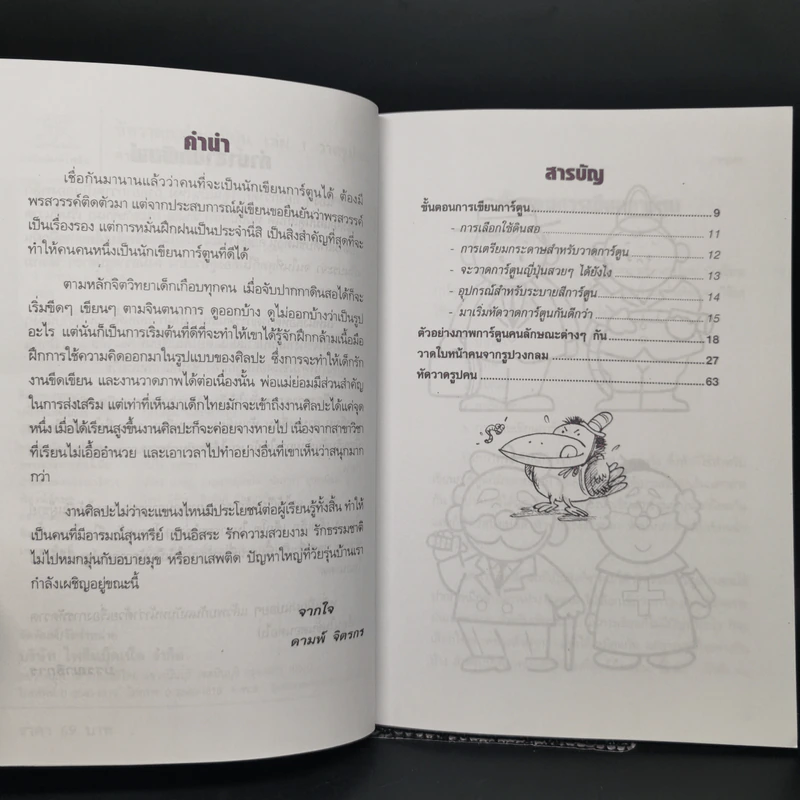 คำนำ
เชื่อกันมานานแล้วว่าคนที่จะเป็นนักเขียนการ์ตูนได้ ต้องมี
พรสวรรค์ติดตัวมา แต่จากประสบการณ์ผู้เขียนขอยืนยันว่าพรสวรรค์
เป็นเรื่องรอง แต่การหมั่นฝึกฝนเป็นประจำนี่สิ เป็นสิ่งสำคัญที่สุดที่จะ
ทำให้คนคนหนึ่งเป็นนักเขียนการ์ตูนที่ดีได้
ตามหลักจิตวิทยาเด็กเกือบทุกคน เมื่อจับปากกาดินสอได้ก็จะ
เริ่มขีดๆ เขียนๆ ตามจินตนาการ ดูออกบ้าง ดูไม่ออกบ้างว่าเป็นรูป
อะไร แต่นั่นก็เป็นการเริ่มต้นที่ดีที่จะทำให้เขาได้รู้จักฝึกกล้ามเนื้อมือ
ฝึกการใช้ความคิดออกมาในรูปแบบของศิลปะ ซึ่งการจะทำให้เด็กรัก
งานขีดเขียน และงานวาดภาพได้ต่อเนื่องนั้น พ่อแม่ย่อมมีส่วนสำคัญ
ในการส่งเสริม แต่เท่าที่เห็นมาเด็กไทยมักจะเข้าถึงงานศิลปะได้แค่จุด
หนึ่ง เมื่อได้เรียนสูงขึ้นงานศิลปะก็จะค่อยจางหายไป เนื่องจากสาขาวิชา
ที่เรียนไม่เอื้ออำนวย และเอาเวลาไปทำอย่างอื่นที่เขาเห็นว่าสนุกมาก
กว่า
งานศิลปะไม่ว่าจะแขนงไหนมีประโยชน์ต่อผู้เรียนรู้ทั้งสิ้น ทำให้
เป็นคนที่มีอารมณ์สุนทรีย์ เป็นอิสระ รักความสวยงาม รักธรรมชาติ
ไม่ไปหมกมุ่นกับอบายมุข หรือยาเสพติด ปัญหาใหญ่ที่วัยรุ่นบ้านเรา
กำลังเผชิญอยู่ขณะนี้
จากใจ
ดามพ์ จิตรกร
สารบัญ
ขั้นตอนการเขียนการ์ตูน 9
- การเลือกใช้ดินสอ 11
- การเตรียมกระดาษสำหรับวาดการ์ตูน 12
- จะวาดการ์ตูนญี่ปุ่นสวยๆ ได้ยังไง 13
- อุปกรณ์สำหรับระบายสีการ์ตูน 14
- มาเริ่มหัดวาดการ์ตูนกันดีกว่า 15
ตัวอย่างภาพการ์ตูนคนลักษณะต่างๆ กัน 18
วาดใบหน้าคนจากรูปวงกลม 27
หัดวาดรูปคน 63